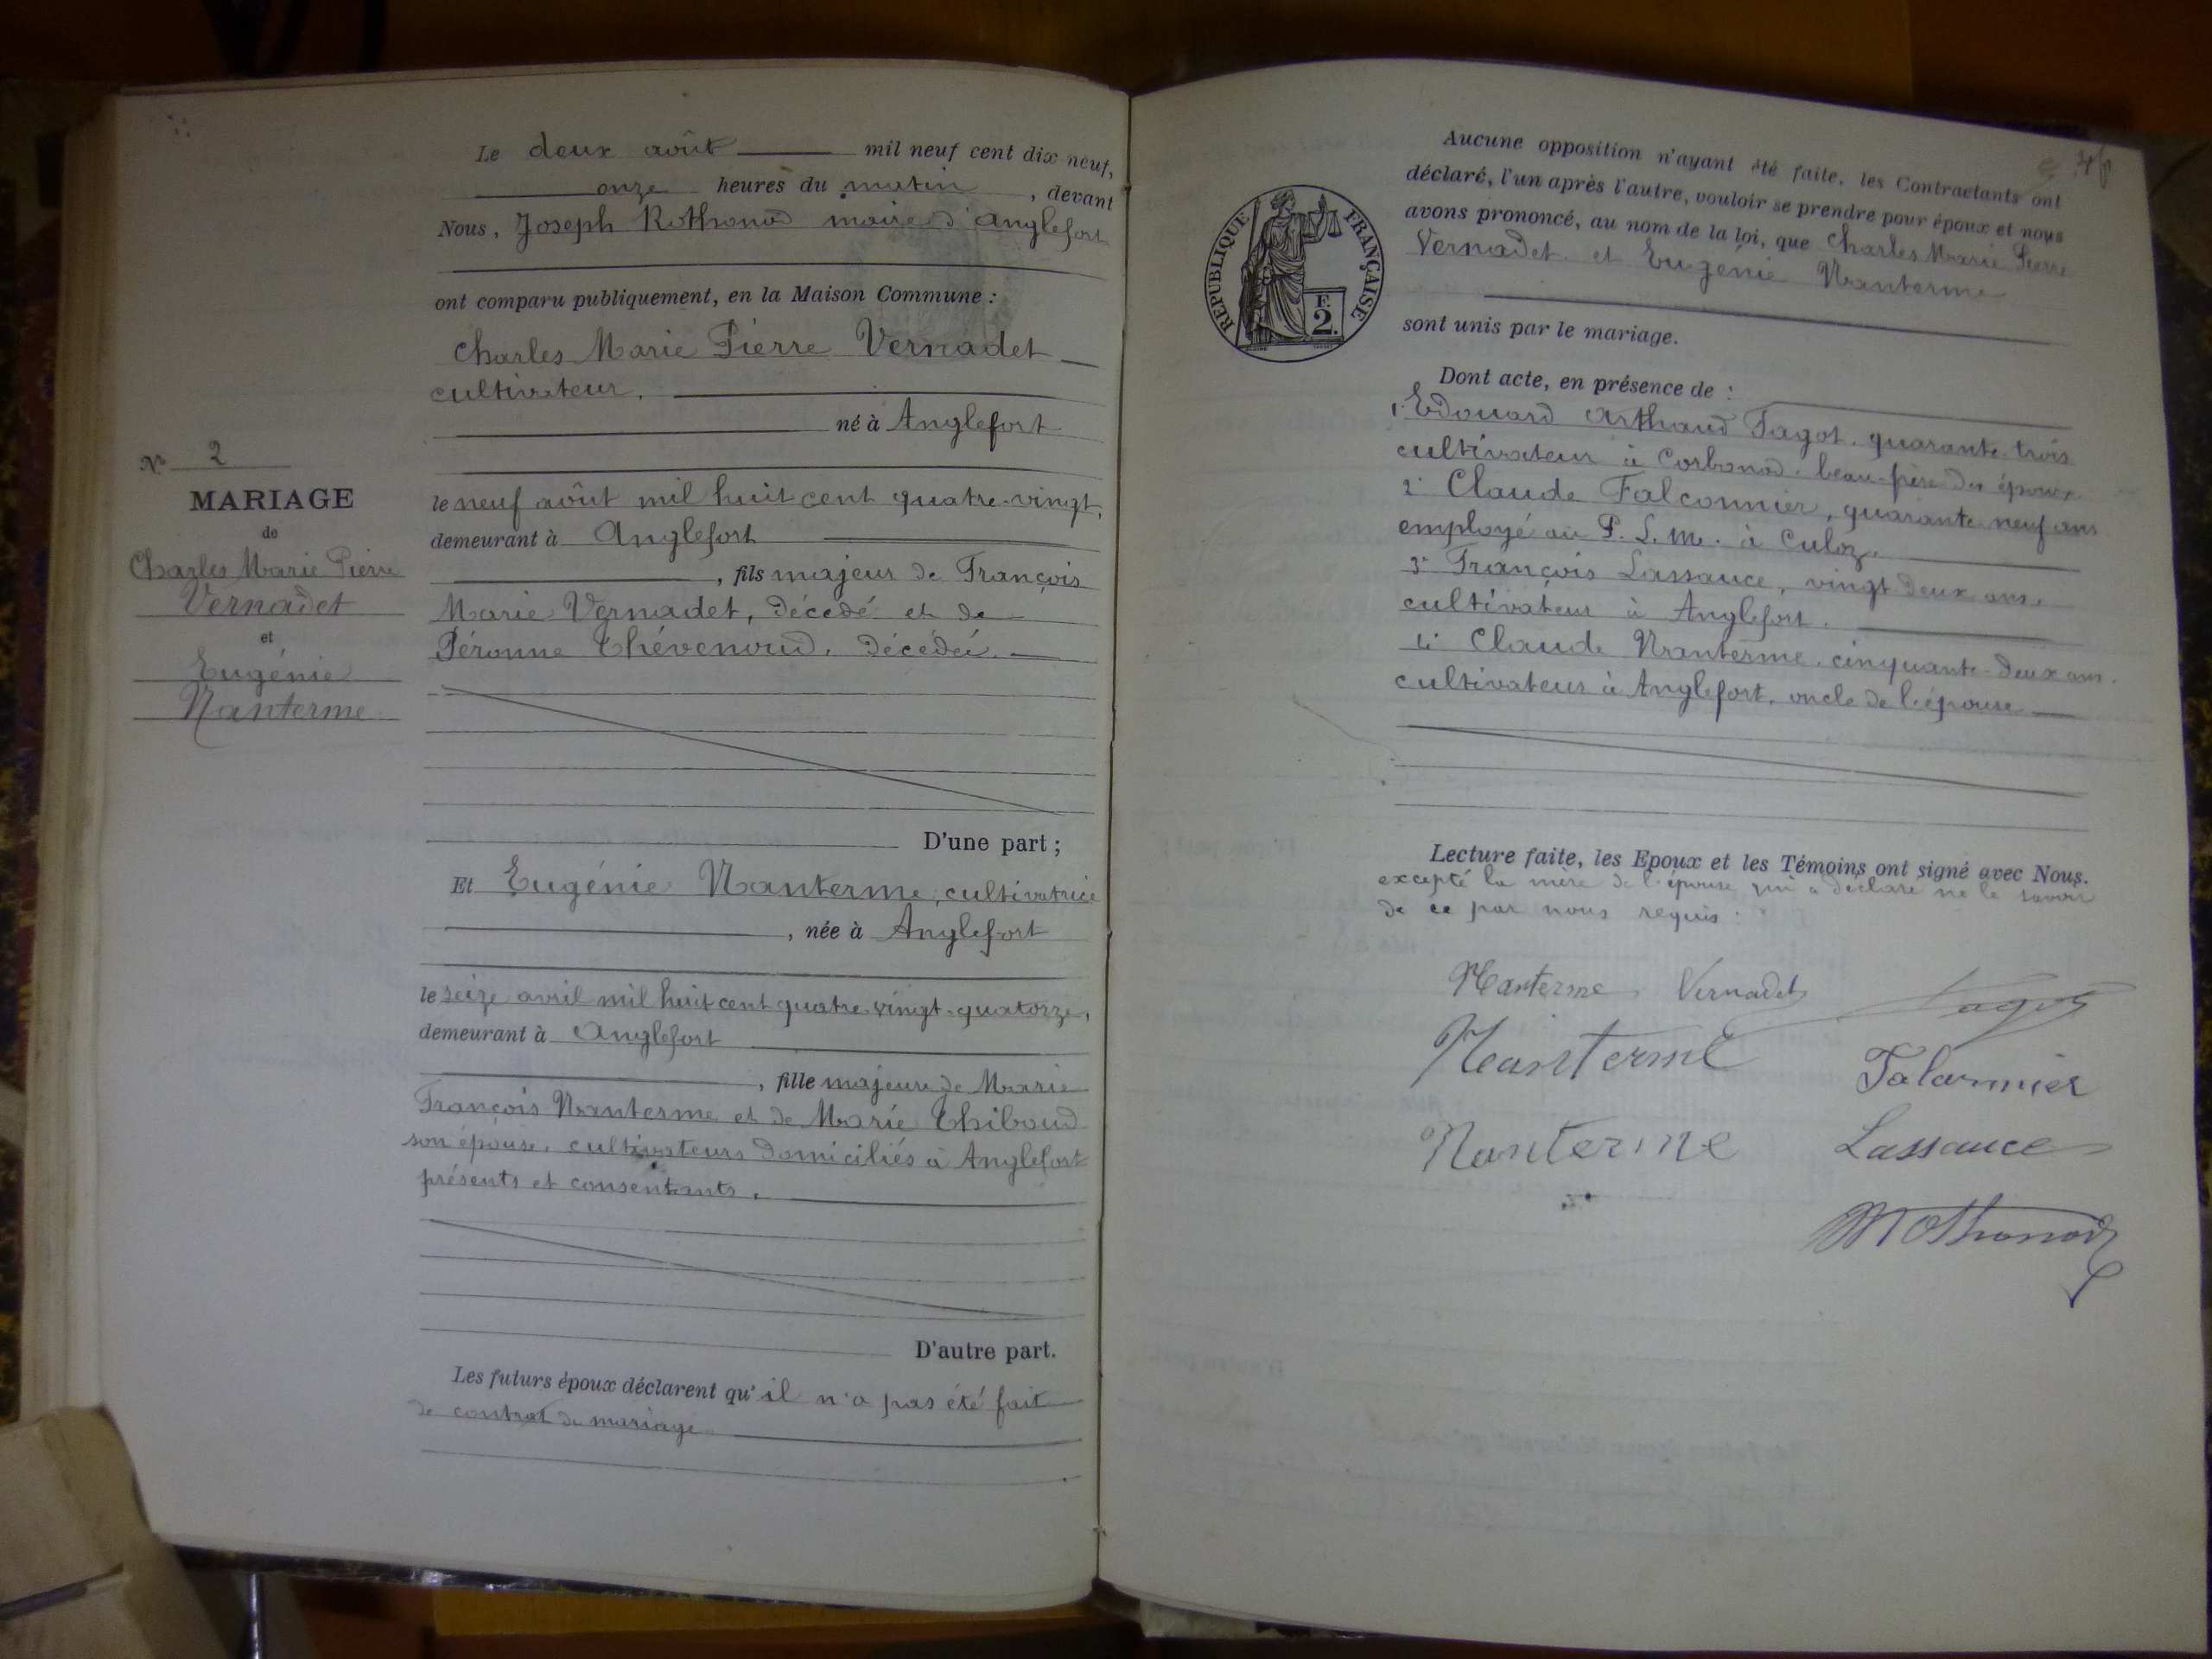 Le deux août mil neuf cent dix neuf,
onze heures du matin, devant
Nous, Joseph Rothonod maire d'Anglefort
ont comparu publiquement, en la Maison Commune :
Charles Marie Pierre Vernadet
cultivateur.
né à Anglefort
le neuf août mil huit cent quatre-vingt,
demeurant à Anglefort
, fils majeur de François
Marie Vernadet, décédé et de
Péronne Thévenoud, décédée.
D'une part ;
Et Eugénie Nanterme, cultivatrice
, née à Anglefort
le seize avril mil huit cent quatre-vingt-quatorze,
demeurant à Anglefort
, fille majeure de Marie
François Nanterme et de Marie Thiboud
son épouse, cultivateurs domiciliés à Anglefort
présents et consentants.
D'autre part.
Les futurs époux déclarent qu'il n'a pas été fait
de contrat de mariage
N° 2
MARIAGE
de
Charles Marie Pierre
Vernadet
et
Eugénie
Nanterme
Aucune opposition n'ayant été faite, les Contractants ont
déclaré, l'un après l'autre, vouloir se prendre pour époux et nous
avons prononcé, au nom de la loi, que Charles Marie Pierre
Vernadet et Eugénie Nanterme
sont unis par le mariage.
REPUBLIQUE FRANÇAISE
F.
2.
Dont acte, en présence de :
1° Edouard Arthaud Fagot, quarante-trois
cultivateur à Corbonod, beau-frère des époux
2° Claude Falconnier, quarante-neuf ans
employé au P. L. M. à Culoz.
3° François Lassauce, vingt deux ans,
cultivateur à Anglefort.
4° Claude Nanterme, cinquante-deux ans.
cultivateur à Anglefort, oncle de l'épouse
Lecture faite, les Epoux et les Témoins ont signé avec Nous.
excepté la mère de l'épouse qui a déclaré ne le savoir
de ce par nous requis :
Nanterme Vernadet Fagot
Nanterme Falconnier
Nanterme Lassauce
Rothonod